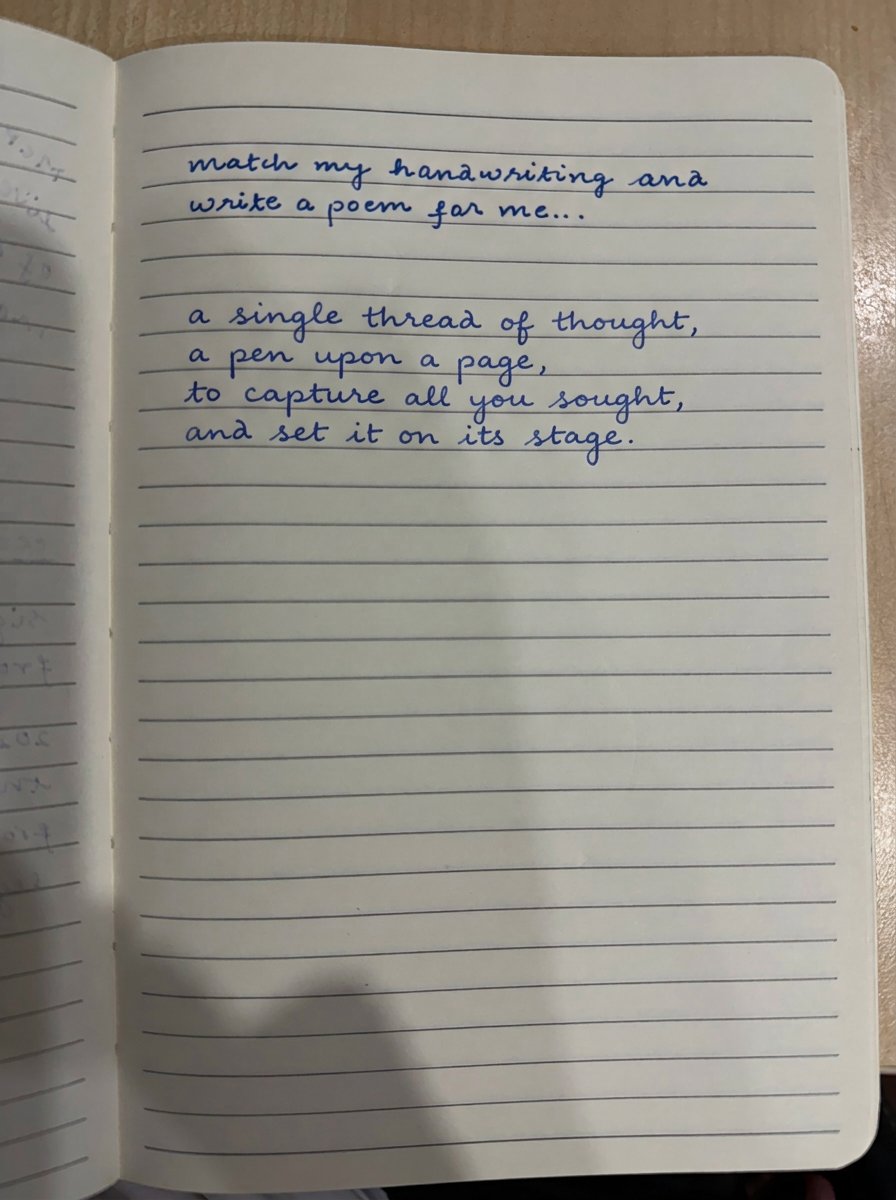 match my handwriting and
write a poem for me...
a single thread of thought,
a pen upon a page,
to capture all you sought,
and set it on its stage.